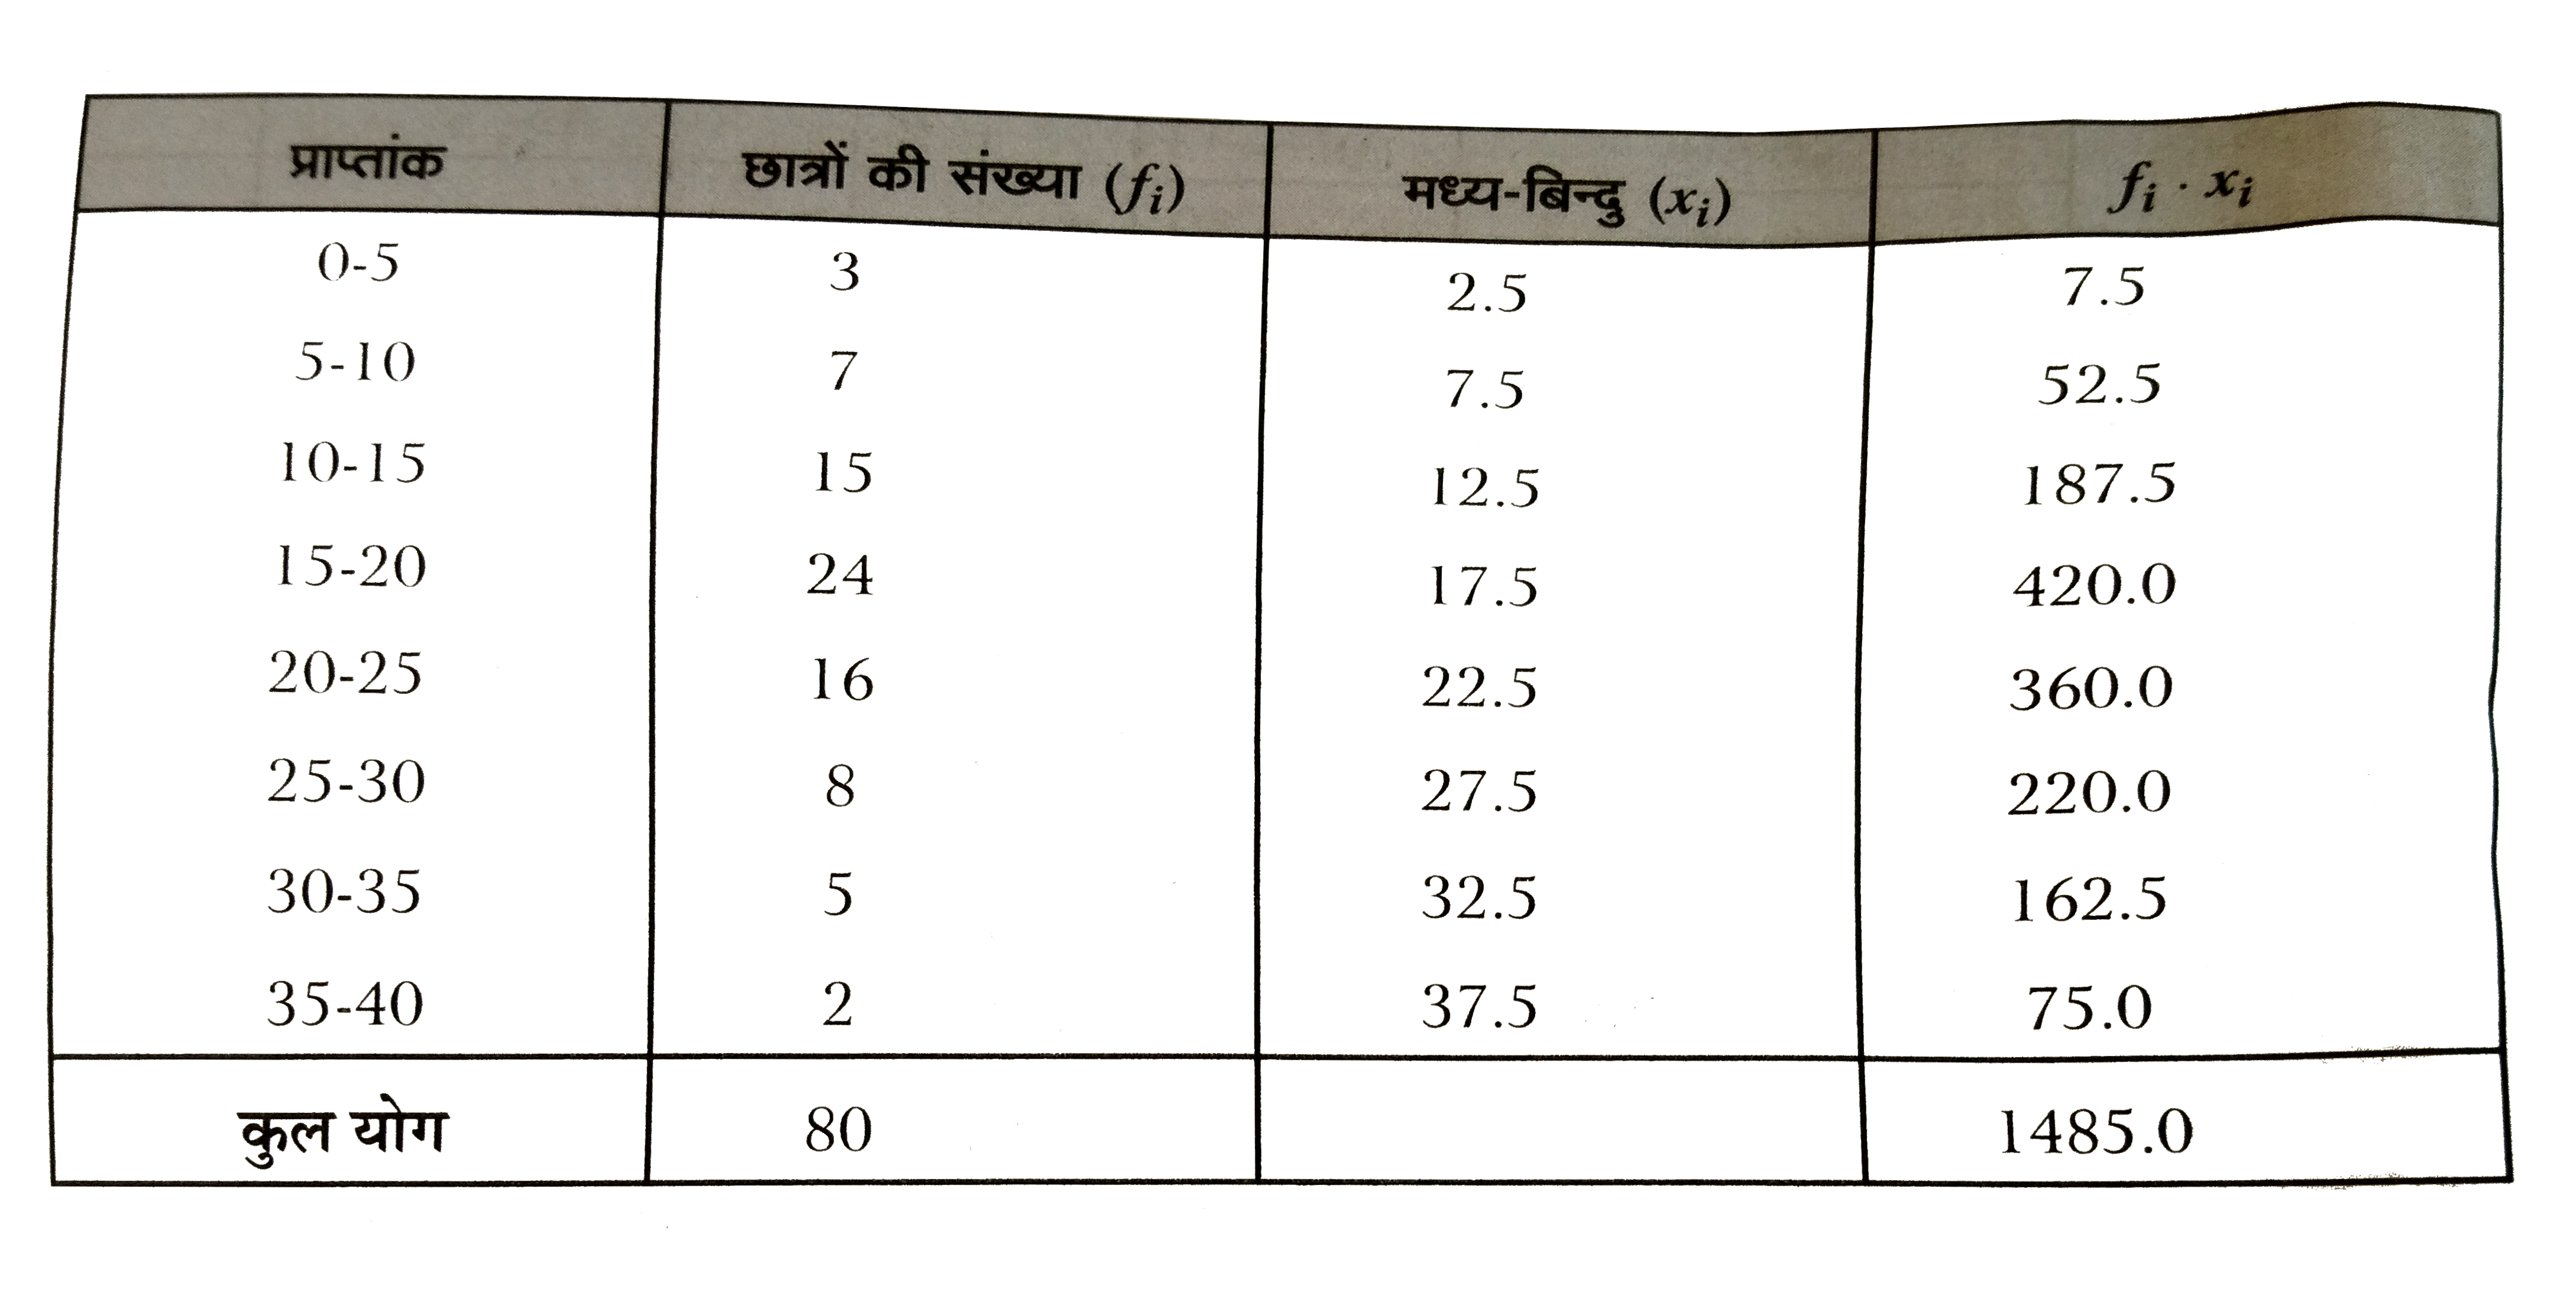 प्राप्तांक छात्रों की संख्या (fi) मध्य-बिन्दु (xi) fi · xi
0-5 3 2.5 7.5
5-10 7 7.5 52.5
10-15 15 12.5 187.5
15-20 24 17.5 420.0
20-25 16 22.5 360.0
25-30 8 27.5 220.0
30-35 5 32.5 162.5
35-40 2 37.5 75.0
कुल योग 80 1485.0